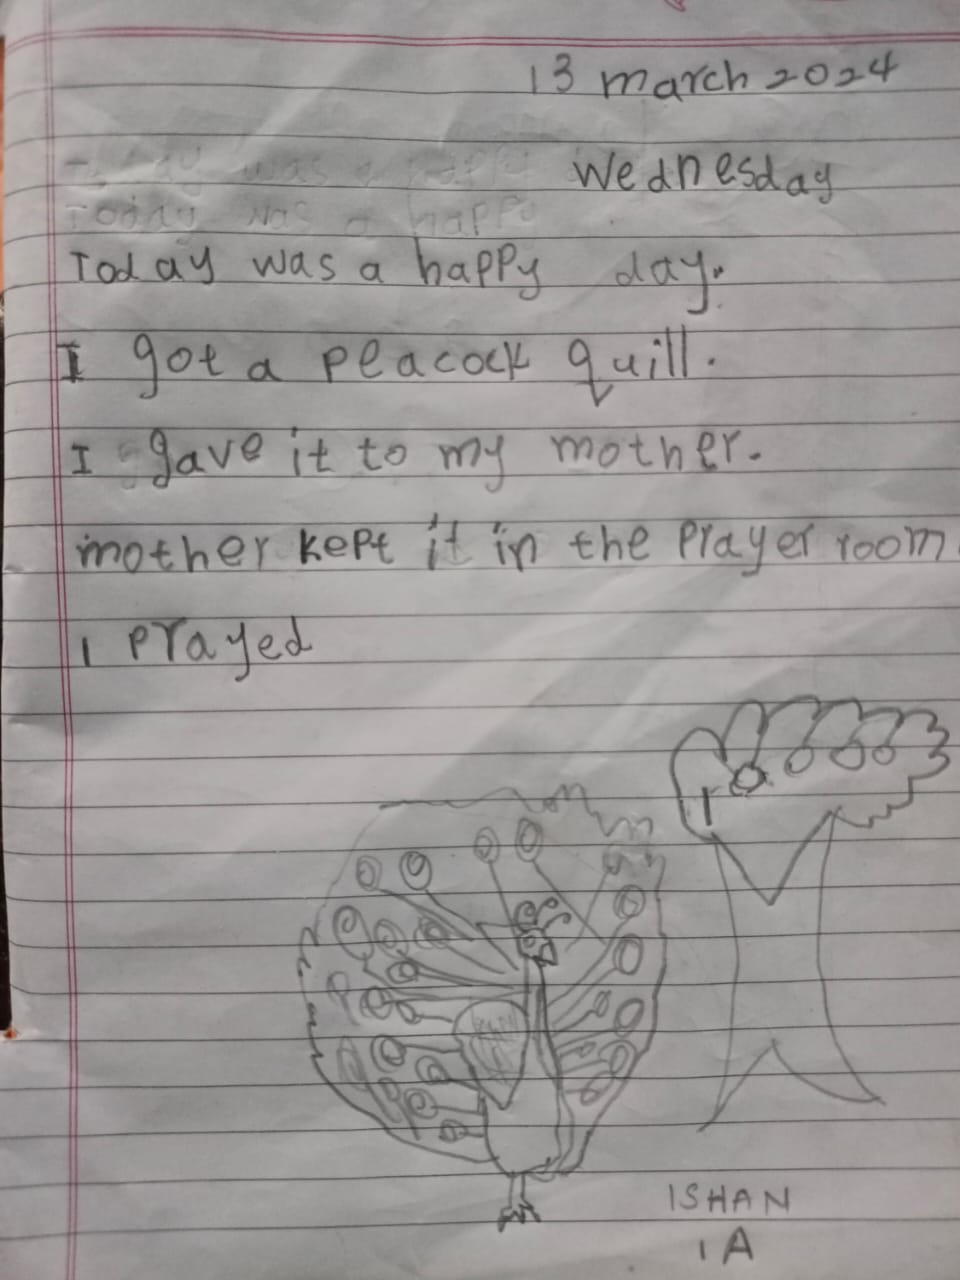 13 march 2024
Wednesday
Today was a happy
Today was a happy day.
I got a peacock quill.
I gave it to my mother.
mother kept it in the prayer room
I prayed
ISHAN
1A